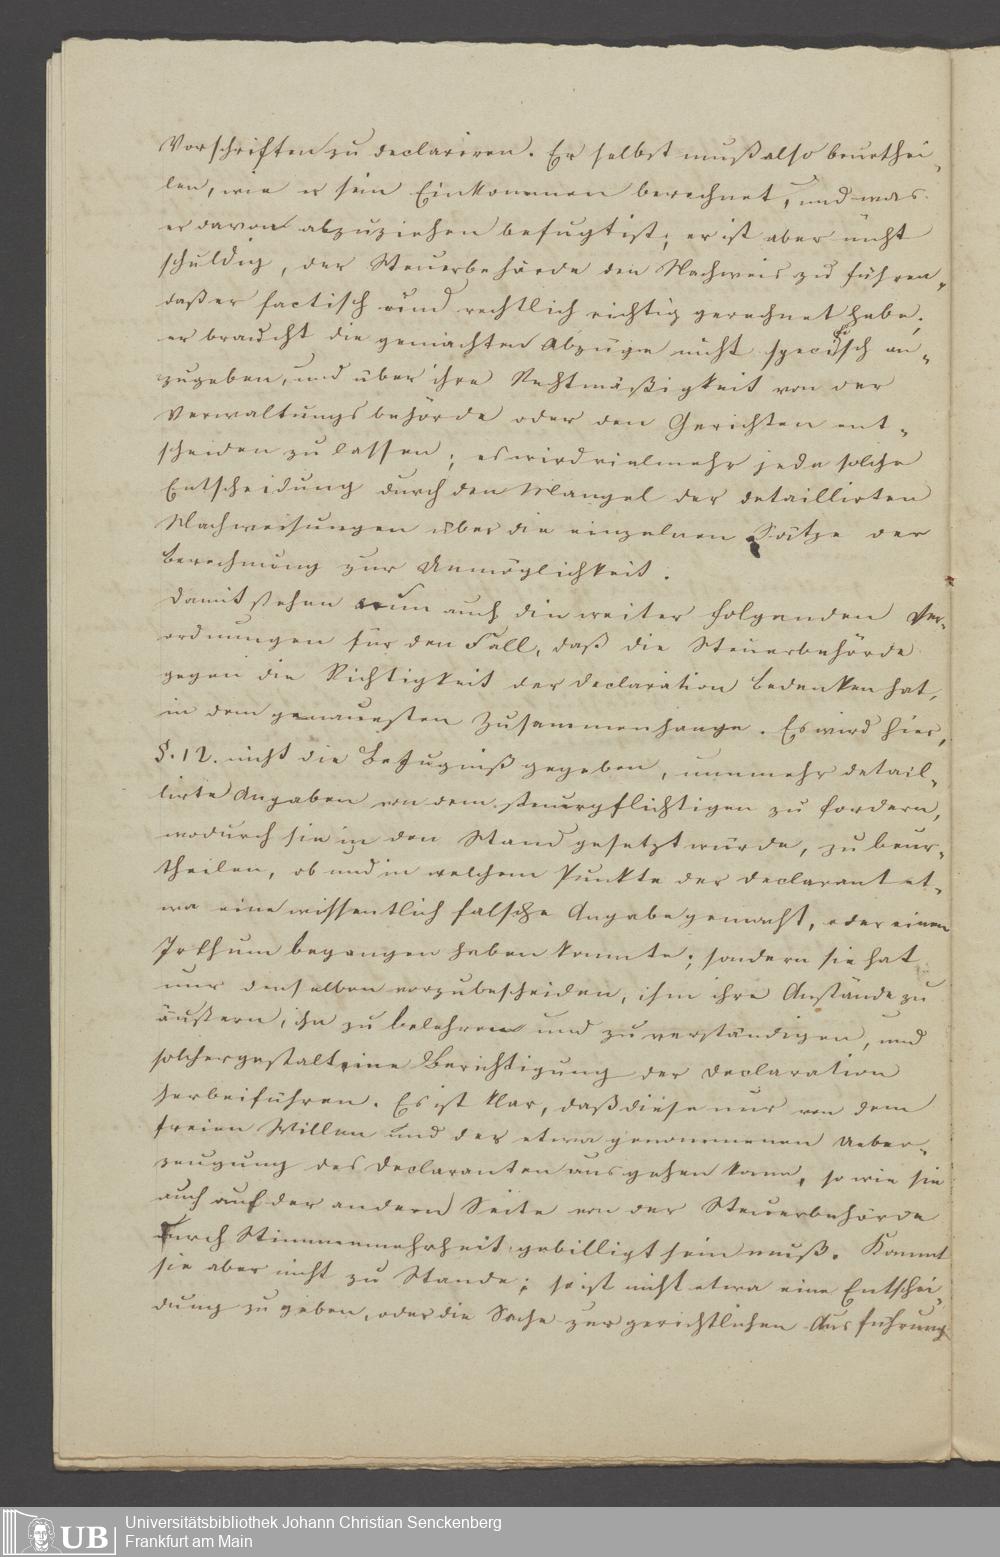 Vorschriften zu declariren. Er selbst muß also beurthei-
len, wie er sein Einkommen berechnet, und was
er davon abzuziehen befugt ist; er ist aber nicht
schuldig, der Steuerbehörde den Nachweis zu führen,
daß er factisch und rechtlich richtig gerechnet habe;
er braucht die gemachten Abzüge nicht specifisch an-
zugeben, und über ihre Rechtmäßigkeit von der
Verwaltungsbehörde oder den Gerichten ent-
scheiden zu lassen; es wird vielmehr jede solche
Entscheidung durch den Mangel der detaillirten
Nachweisungen über die einzelnen Sätze der
Berechnung zur Unmöglichkeit.
Damit stehen nun auch die weiter folgenden Ver-
ordnungen für den Fall, daß die Steuerbehörde
gegen die Richtigkeit der Declaration Bedenken hat,
in dem genauesten Zusammenhange. Es wird hier,
§. 12. nicht die Befugniß gegeben, nunmehr detail-
lirte Angaben von dem Steuerpflichtigen zu fordern,
wodurch sie in den Stand gesetzt würde, zu beur-
theilen, ob und in welchem Punkte der Declarant et-
wa eine wissentlich falsche Angabe gemacht, oder einen
Irthum begangen haben konnte; sondern sie hat
nur denselben vorzubescheiden, ihm ihre Anstände zu
äußern, ihn zu belehren und zu verständigen, und
solchergestalt eine Berichtigung der Declaration
herbeiführen. Es ist klar, daß diese nur von dem
freien Willen und der etwa genommenen Ueber-
zeugung des Declaranten ausgehen kann, so wie sie
auch auf der andern Seite von der Steuerbehörde
durch Stimmenmehrheit gebilligt sein muß. Kommt
sie aber nicht zu Stande; so ist nicht etwa eine Entschei-
dung zu geben, oder die Sache zur gerichtlichen Ausführung
UB
Universitätsbibliothek Johann Christian Senckenberg
Frankfurt am Main